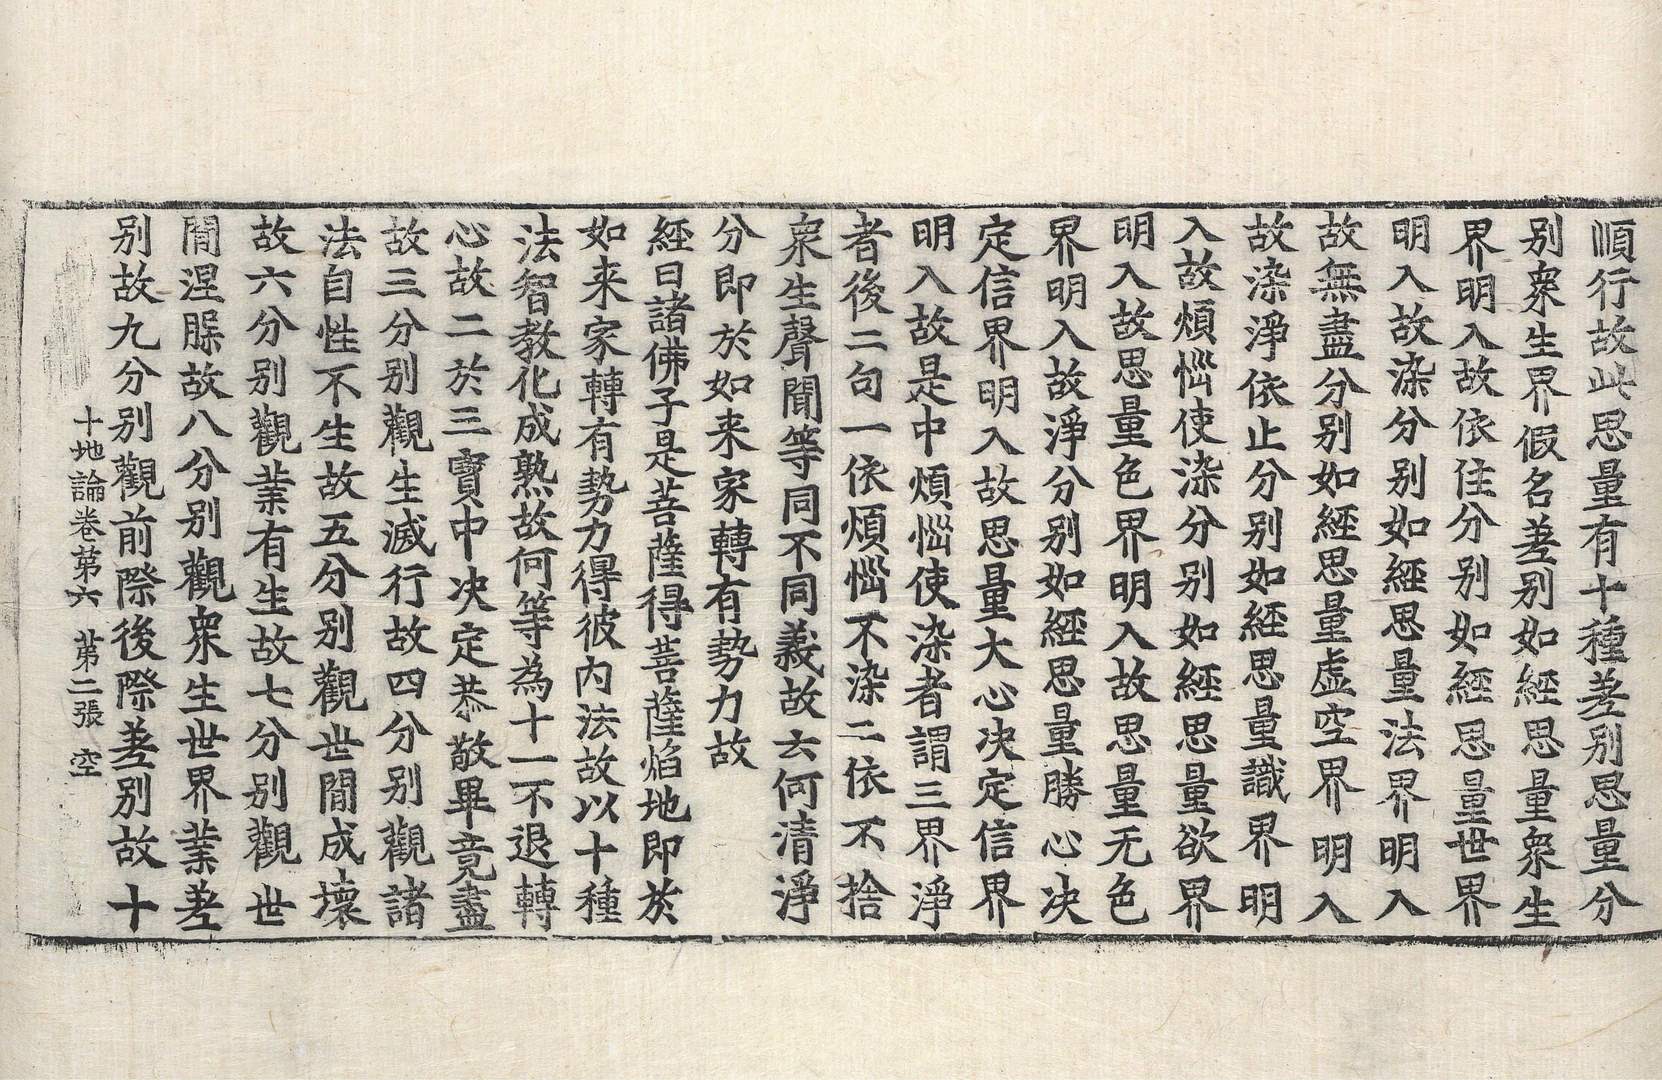 順行故此思量有十種差別思量分
別衆生界假名差別如經思量衆生
界明入故依住分別如經思量世界
明入故染分別如經思量法界明入
故無盡分別如經思量虛空界明入
故染淨依止分別如經思量識界明
入故煩惱使染分別如經思量欲界
明入故思量色界明入故思量无色
界明入故淨分別如經思量勝心決
定信界明入故思量大心決定信界
明入故是中煩惱使染者謂三界淨
者後二句一依煩惱不染二依不捨
衆生聲聞等同不同義故云何清淨
分即於如来家轉有勢力故
經曰諸佛子是菩薩得菩薩焰地即於
如来家轉有勢力得彼內法故以十種
法智教化成熟故何等為十一不退轉
心故二於三寶中決定恭敬畢竟盡
故三分別觀生滅行故四分別觀諸
法自性不生故五分別觀世間成壞
故六分別觀業有生故七分別觀世
間涅槃故八分別觀衆生世界業差
別故九分別觀前際後際差別故十
十地論卷第六 第二張 空